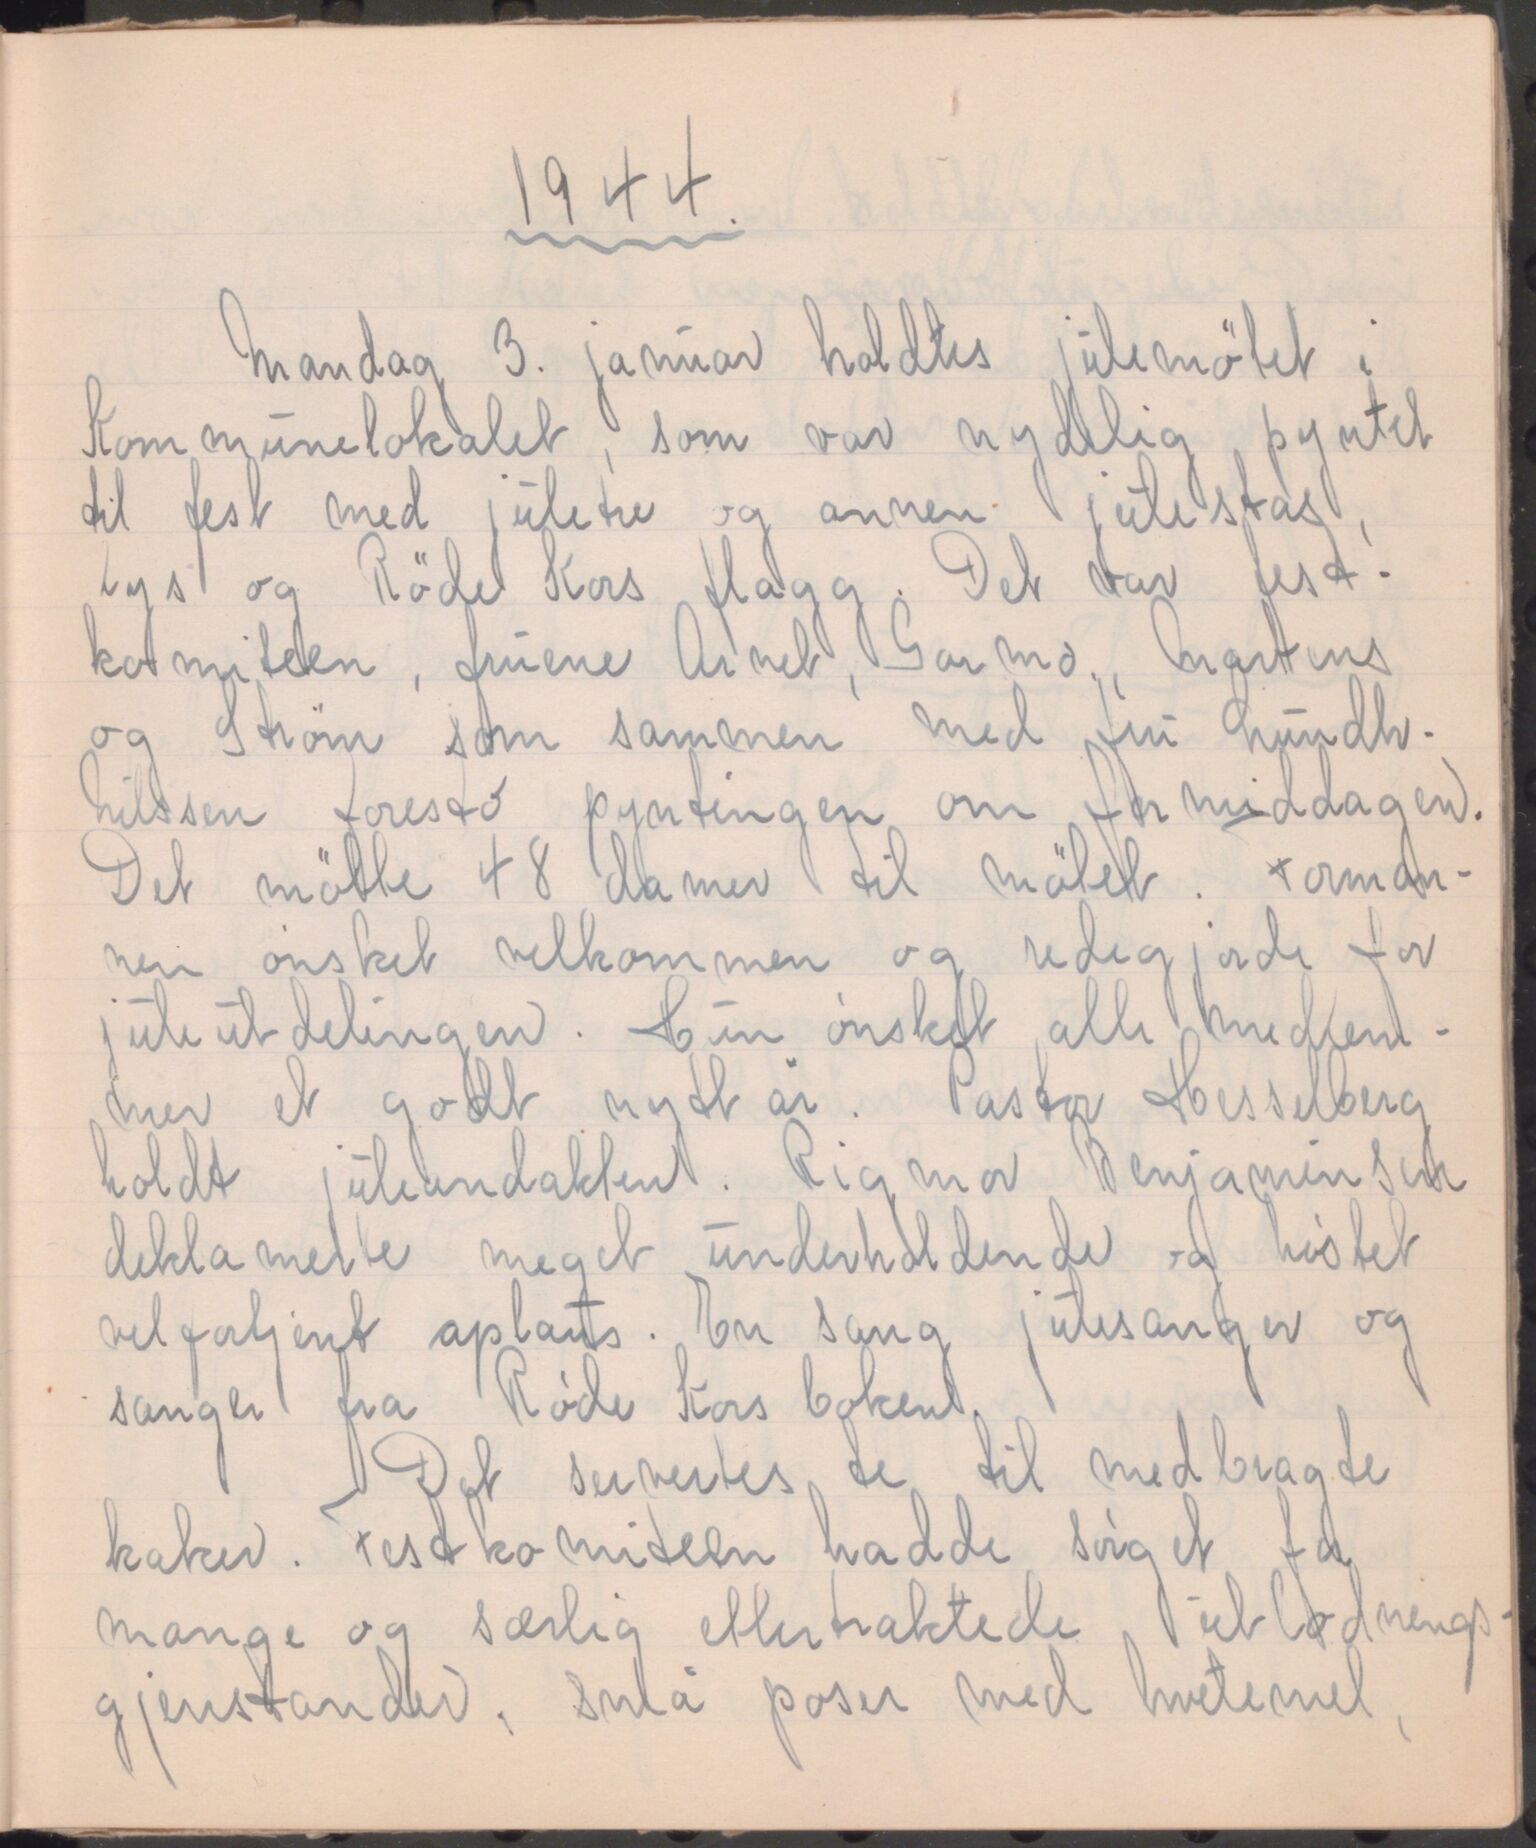 1944.
Mandag 3. januar holdtes julemötet i
Kommunelokalet, som var nydelig pyntet
til fest med juletre og annen julestas,
lys og Röde Kors flagg. Det var fest-
komiteen, fruene Arnet, Garmo, Martens
og Ström som sammen med fru
Nilssen foresto pyntingen om formiddagen.
Det mötte 48 damer til mötet. Forman-
nen ønsket velkommen og redegjorde for
juleutdelingen. Hun ønsket alle medlem-
mer et godt nytt år. Pastor Hesselberg
holdt juleandakten. Rigmor Benjaminsen
deklamerte meget underholdende og høstet
velfortjent aplaus. En sang julesanger og
sanger fra Røde Kors boken.
Det servertes te til medbragte
kaker. Festkomiteen hadde sørget for
mange og særlig ettertraktede utlodnings-
gjenstander, små poser med hvetemel,